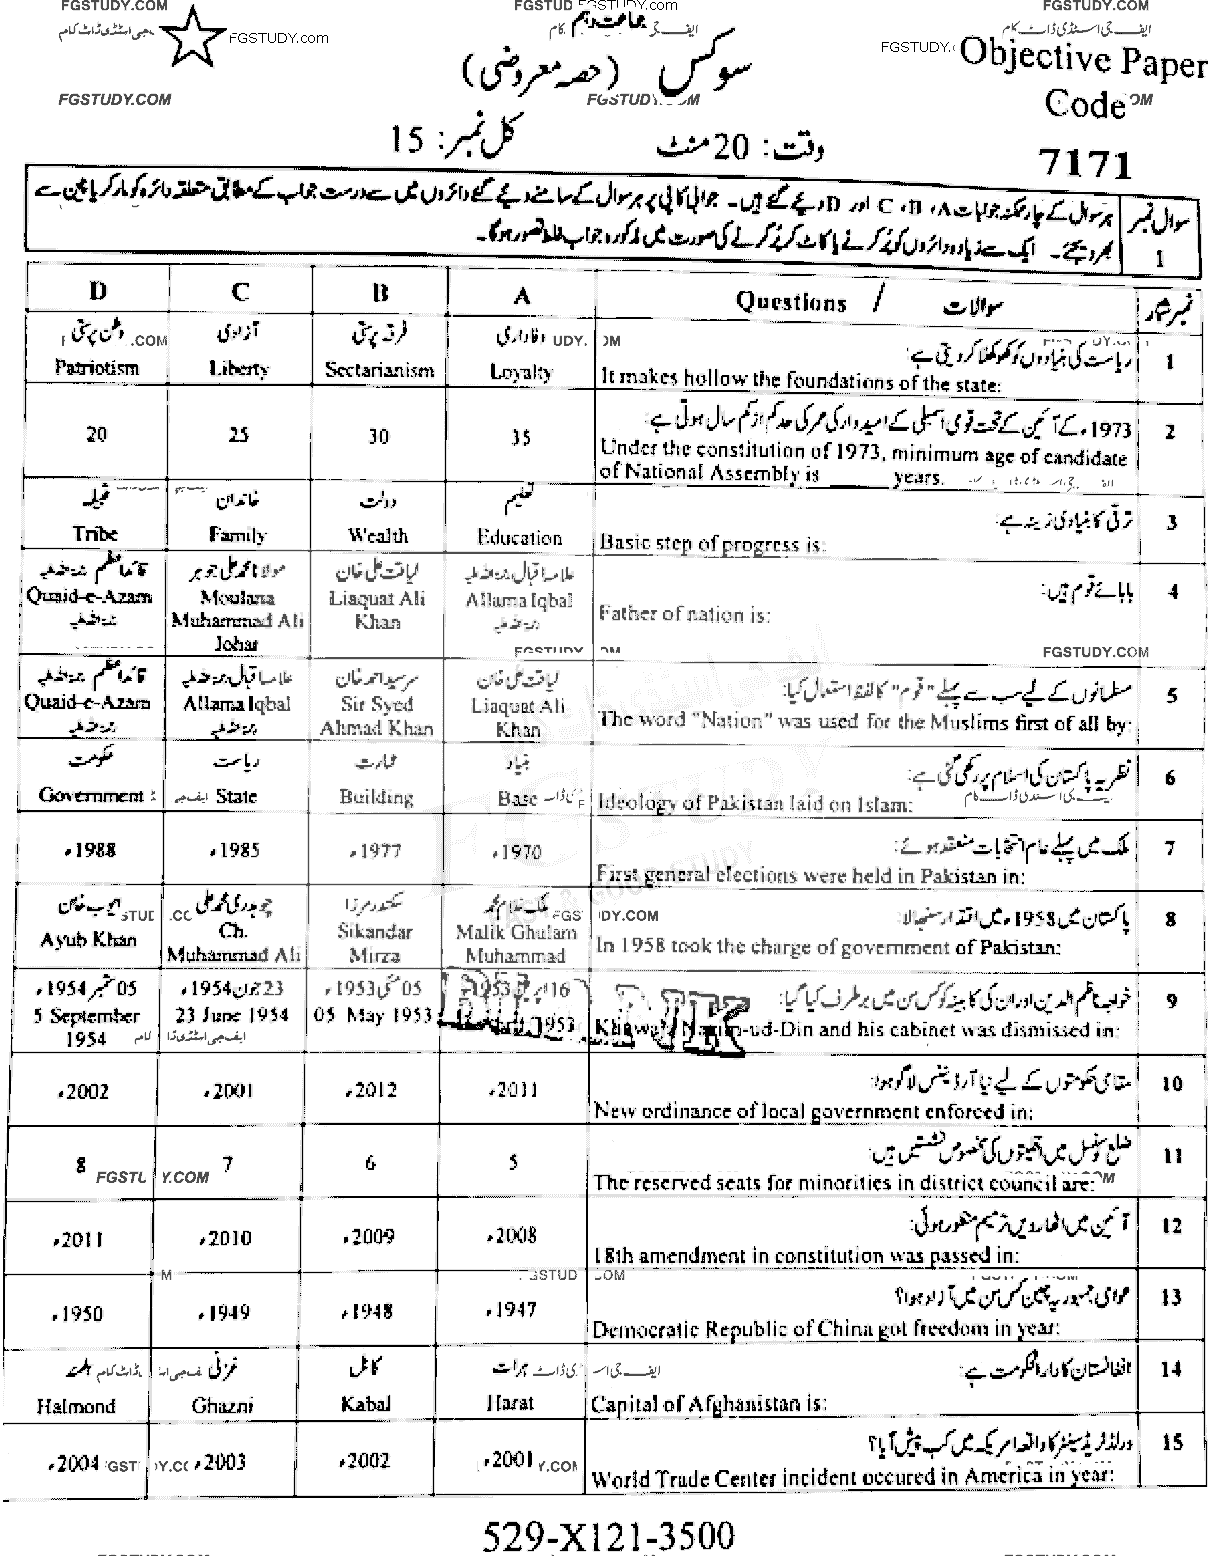 FGSTUDY.COM
FGSTUDY.com
FGSTUDY.COM
FGSTUDY.com
جماعت دہم
ایف جی اسٹڈی ڈاٹ کام
FGSTUDY.COM
سوکس (حصہ معروضی)
Objective Paper
Code
7171
وقت: 20 منٹ
کل نمبر: 15
سوال نمبر 1
ہر سوال کے چار ممکنہ جوابات A، B، C اور D دیئے گئے ہیں۔ جوابی کاپی پر ہر سوال کے سامنے دیئے گئے دائروں میں سے درست جواب کے مطابق متعلقہ دائرہ کو مارکر یا پین سے
بھر دیجئے۔ ایک سے زیادہ دائروں کو پُر کرنے یا کاٹ کر پُر کرنے کی صورت میں مذکورہ جواب غلط تصور ہوگا۔
D C B A Questions / سوالات نمبر شمار
1 ریاست کی بنیادوں کو کھوکھلا کر دیتی ہے:
It makes hollow the foundations of the state:
وفاداری Loyalty
فرقہ پرستی Sectarianism
آزادی Liberty
وطن پرستی Patriotism
2 1973ء کے آئین کے تحت قومی اسمبلی کے امیدوار کی عمر کی حد کم از کم سال ہوتی ہے:
Under the constitution of 1973, minimum age of candidate
of National Assembly is ______ years.
35 30 25 20
3 ترقی کا بنیادی زینہ ہے:
Basic step of progress is:
تعلیم Education
دولت Wealth
خاندان Family
قبیلہ Tribe
4 بابائے قوم ہیں:
Father of nation is:
علامہ اقبال Allama Iqbal
لیاقت علی خان Liaquat Ali Khan
مولانا محمد علی جوہر Moulana Muhammad Ali Johar
قائداعظم Quaid-e-Azam
5 مسلمانوں کے لیے سب سے پہلے "قوم" کا لفظ استعمال کیا:
The word "Nation" was used for the Muslims first of all by:
لیاقت علی خان Liaquat Ali Khan
سرسید احمد خان Sir Syed Ahmad Khan
علامہ اقبال Allama Iqbal
قائداعظم Quaid-e-Azam
6 نظریہ پاکستان کی اسلام پر رکھی گئی ہے:
Ideology of Pakistan laid on Islam:
بنیاد Base
عمارت Building
ریاست State
حکومت Government
7 ملک میں پہلے عام انتخابات منعقد ہوئے:
First general elections were held in Pakistan in:
1970ء 1977ء 1985ء 1988ء
8 پاکستان میں 1958ء میں اقتدار سنبھالا:
In 1958 took the charge of government of Pakistan:
ملک غلام محمد Malik Ghulam Muhammad
سکندر مرزا Sikandar Mirza
چوہدری محمد علی Ch. Muhammad Ali
ایوب خان Ayub Khan
9 خواجہ ناظم الدین اور ان کی کابینہ کو کس سن میں برطرف کیا گیا:
Khawaja Nazim-ud-Din and his cabinet was dismissed in:
16 اپریل 1953ء 1953
05 مئی 1953ء 05 May 1953
23 جون 1954ء 23 June 1954
05 ستمبر 1954ء 5 September 1954
10 مقامی حکومتوں کے لیے نیا آرڈیننس لاگو ہوا:
New ordinance of local government enforced in:
2011ء 2012ء 2001ء 2002ء
11 ضلع کونسل میں اقلیتوں کی مخصوص نشستیں ہیں:
The reserved seats for minorities in district council are:
5 6 7 8
12 آئین میں اٹھارویں ترمیم منظور ہوئی:
18th amendment in constitution was passed in:
2008ء 2009ء 2010ء 2011ء
13 عوامی جمہوریہ چین کس سن میں آزاد ہوا؟
Democratic Republic of China got freedom in year:
1947ء 1948ء 1949ء 1950ء
14 افغانستان کا دارالحکومت ہے:
Capital of Afghanistan is:
ہرات Harat
کابل Kabal
غزنی Ghazni
ہلمند Halmond
15 ورلڈ ٹریڈ سینٹر کا واقعہ امریکہ میں کب پیش آیا؟
World Trade Center incident occured in America in year:
2001ء 2002ء 2003ء 2004ء
529-X121-3500